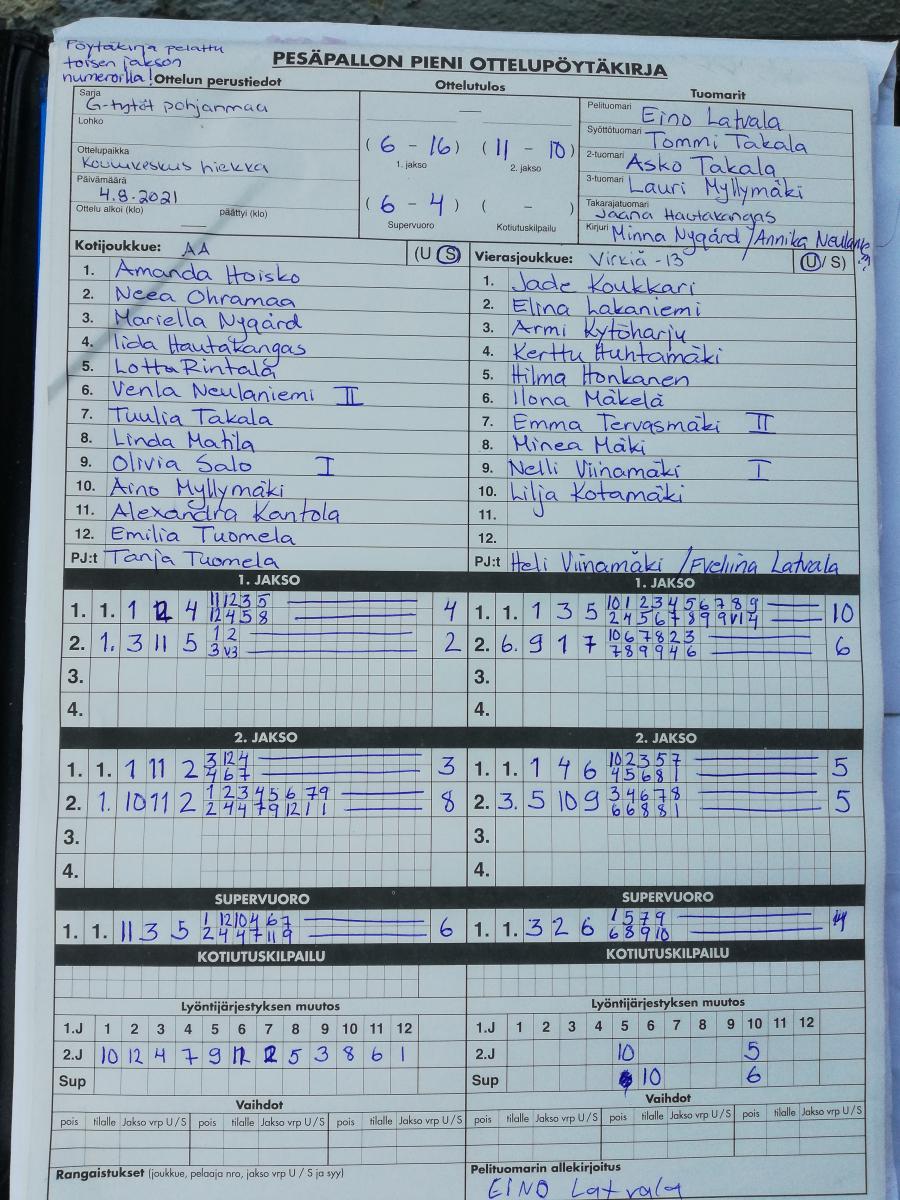 Pöytäkirja pelattu
toisen jakson
numeroilla!
PESÄPALLON PIENI OTTELUPÖYTÄKIRJA
Ottelun perustiedot
Ottelutulos
Tuomarit
Sarja G-tytöt pohjanmaa
Lohko
Ottelupaikka Koulukeskus hiekka
Päivämäärä 4.8.2021
Ottelu alkoi (klo) päättyi (klo)
( 6 - 16 ) ( 11 - 10 )
1. jakso 2. jakso
( 6 - 4 ) ( - )
Supervuoro Kotiutuskilpailu
Pelituomari Eino Latvala
Syöttötuomari Tommi Takala
2-tuomari Asko Takala
3-tuomari Lauri Myllymäki
Takarajatuomari Jaana Hautakangas
Kirjuri Minna Nygård / Annika
Kotijoukkue: AA (U S)
1. Amanda Hoisko
2. Neea Ohramaa
3. Mariella Nygård
4. Iida Hautakangas
5. Lotta Rintala
6. Venla Neulaniemi II
7. Tuulia Takala
8. Linda Matila
9. Olivia Salo I
10. Aino Myllymäki
11. Alexandra Kantola
12. Emilia Tuomela
PJ:t Tanja Tuomela
Vierasjoukkue: Virkiä -13 (U/ S)
1. Jade Koukkari
2. Elina Lakaniemi
3. Armi Kytöharju
4. Kerttu Huhtamäki
5. Hilma Honkanen
6. Ilona Mäkelä
7. Emma Tervasmäki II
8. Minea Mäki
9. Nelli Viinamäki I
10. Lilja Kotamäki
11.
12.
PJ:t Heli Viinamäki / Eveliina Latvala
1. JAKSO
1. 1. 1 4 11 12 3 5 4
12 4 5 8
2. 1. 3 11 5 1 2 2
3 V3
3.
4.
1. JAKSO
1. 1. 1 3 5 10 1 2 3 4 5 6 7 8 9 10
2 4 5 6 7 8 9 9 V1 4
2. 6. 9 1 7 10 6 7 8 2 3 6
7 8 9 9 4 6
3.
4.
2. JAKSO
1. 1. 1 11 2 3 12 4 3
4 6 7
2. 1. 10 11 2 1 2 3 4 5 6 7 9 8
2 4 4 7 9 12 1 1
3.
4.
2. JAKSO
1. 1. 1 4 6 10 2 3 5 7 5
4 5 6 8 1
2. 3. 5 10 9 3 4 6 7 8 5
6 6 8 8 1
3.
4.
SUPERVUORO
1. 1. 11 3 5 1 12 10 4 6 7 6
2 4 4 7 11 9
SUPERVUORO
1. 1. 3 2 6 1 5 7 9 4
6 8 9 10
KOTIUTUSKILPAILU
KOTIUTUSKILPAILU
Lyöntijärjestyksen muutos
1.J 1 2 3 4 5 6 7 8 9 10 11 12
2.J 10 12 4 7 9 11 2 5 3 8 6 1
Sup
Lyöntijärjestyksen muutos
1.J 1 2 3 4 5 6 7 8 9 10 11 12
2.J 10 5
Sup 10 6
Vaihdot
pois tilalle Jakso vrp U / S pois tilalle Jakso vrp U / S pois tilalle Jakso vrp U / S
Vaihdot
pois tilalle Jakso vrp U / S pois tilalle Jakso vrp U / S pois tilalle Jakso vrp U / S
Rangaistukset (joukkue, pelaaja nro, jakso vrp U / S ja syy)
Pelituomarin allekirjoitus
EINO Latvala